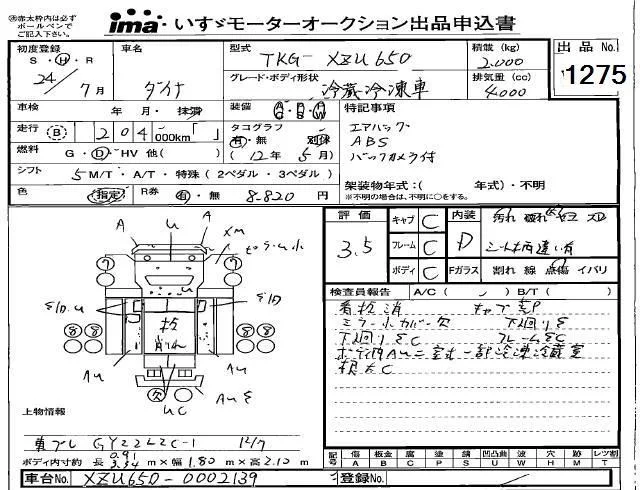 ※赤太枠内は必ずボールペンでご記入下さい。
ima いすゞモーターオークション出品申込書
初度登録 S・H・R 24/7月
車名 ダイナ
型式 TKG-XZU650
積載(kg) 2.000
出品No. 1275
グレード・ボディ形状 冷蔵冷凍車
排気量(cc) 4000
車検 年 月・抹消
装備 A/C P/S P/W
特記事項
走行 B 204,000km「 」
タコグラフ 有・無 別体
エアバック
ABS
バックカメラ付
燃料 G・D・HV 他( )
(12年5月)
シフト 5 M/T・A/T・特殊(2ペダル・3ペダル)
架装物年式:( 年式)・不明
※不明の場合は、不明に○をする。
色 (指定)
R券 有・無 8.820円
評価 3.5
キャブ C
フレーム C
ボディ C
内装 D
汚れ 破れ
シート柄違い有
Fガラス 割れ 線 点傷 イバリ
検査員報告 A/C( ) B/T( )
看板消
ミラー小カバー欠 下廻りE
下廻りEC フレームEC
損大C
A u A
XM
E/D.U
E/D
7 7
8 8 8 8
Au Au
欠
UC AuE
上物情報
東プレ GY22L2C-1 12/7
ボディ内寸約 長 0.91 3.34 m×幅 1.80 m×高 2.10 m
記号 傷 A 板金 B 腐 C 塗 P 錆 S 凹凸曲 U 修 W 穴 H 跡 M 交 X レツ割 T
車台No. XZU650-0002139
登録No.